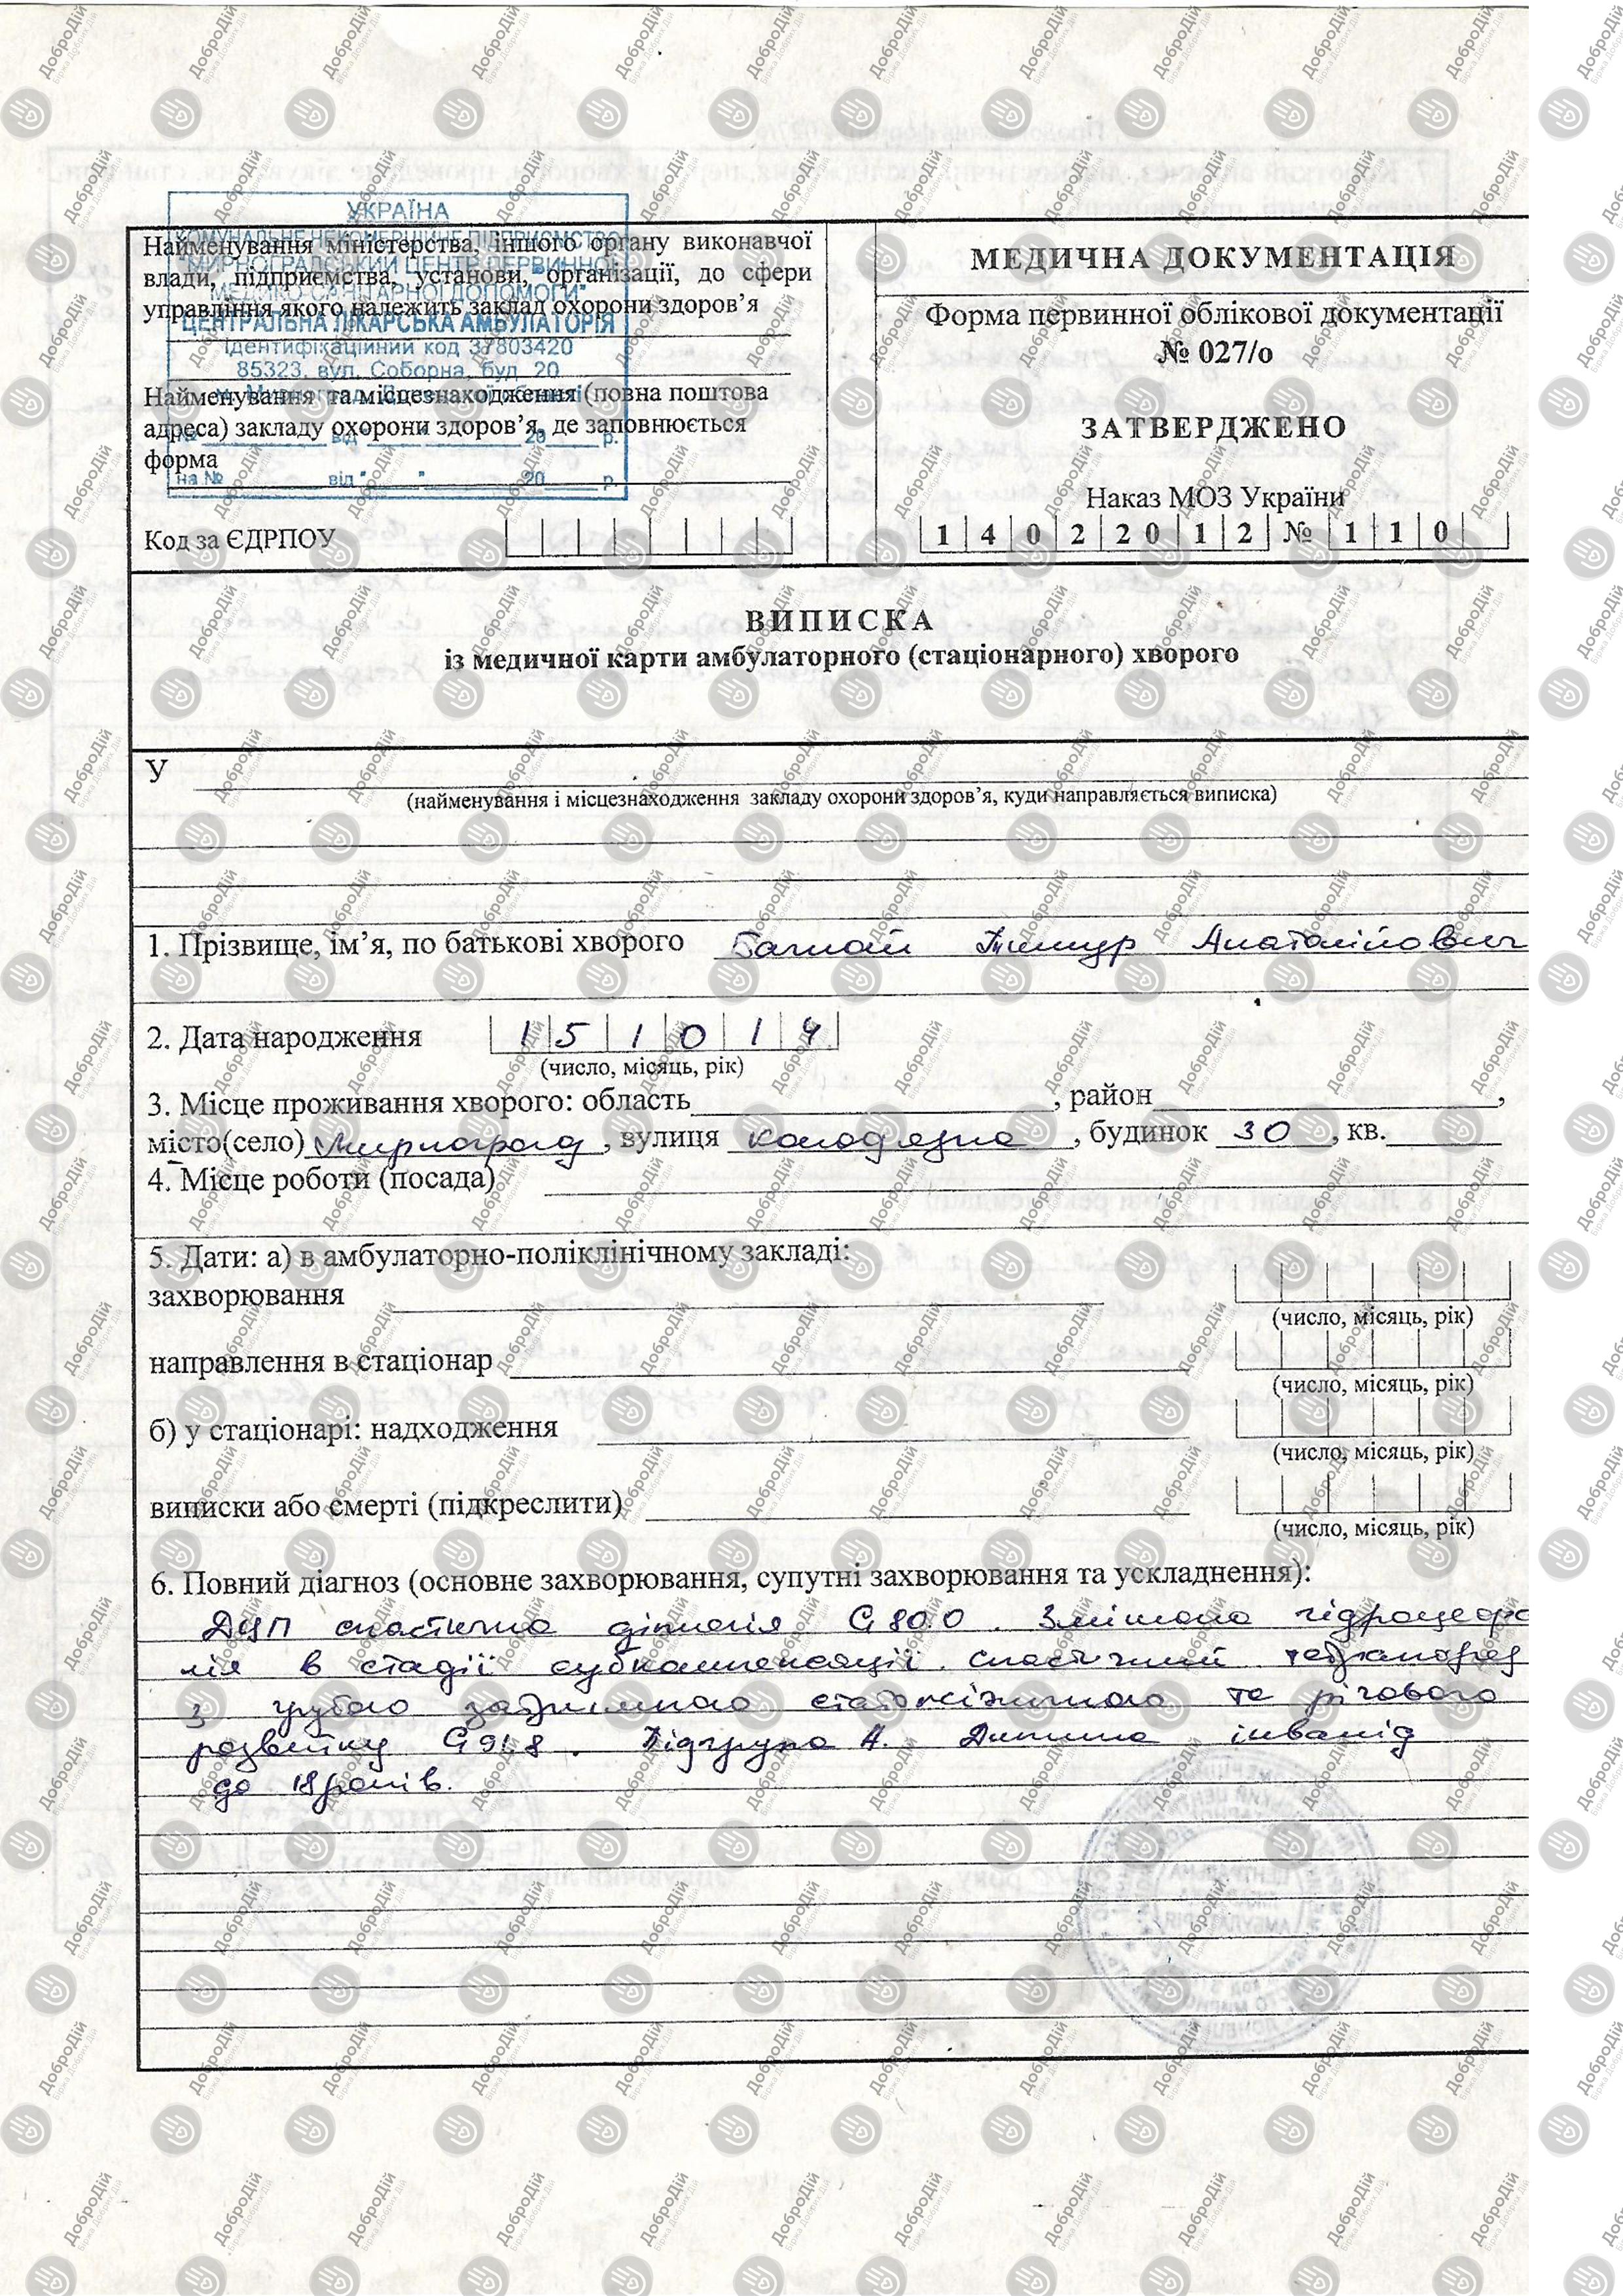 УКРАЇНА
КОМУНАЛЬНЕ НЕКОМЕРЦІЙНЕ ПІДПРИЄМСТВО
"МИРНОГРАДСЬКИЙ ЦЕНТР ПЕРВИННОЇ
МЕДИКО-САНІТАРНОЇ ДОПОМОГИ"
ЦЕНТРАЛЬНА ЛІКАРСЬКА АМБУЛАТОРІЯ
Ідентифікаційний код 37803420
85323, вул. Соборна, буд. 20
№ від " " 20 р.
на № від " " 20 р.
Найменування міністерства, іншого органу виконавчої
влади, підприємства, установи, організації, до сфери
управління якого належить заклад охорони здоров’я
Найменування та місцезнаходження (повна поштова
адреса) закладу охорони здоров’я, де заповнюється
форма
Код за ЄДРПОУ
МЕДИЧНА ДОКУМЕНТАЦІЯ
Форма первинної облікової документації
№ 027/о
ЗАТВЕРДЖЕНО
Наказ МОЗ України
1 4 0 2 2 0 1 2 № 1 1 0
ВИПИСКА
із медичної карти амбулаторного (стаціонарного) хворого
У
(найменування і місцезнаходження закладу охорони здоров’я, куди направляється виписка)
1. Прізвище, ім’я, по батькові хворого Тимур Анатолійович
2. Дата народження 1 5 1 0 1 4
(число, місяць, рік)
3. Місце проживання хворого: область , район ,
місто(село) Мирноград , вулиця колодязна , будинок 30 , кв.
4. Місце роботи (посада)
5. Дати: а) в амбулаторно-поліклінічному закладі:
захворювання
(число, місяць, рік)
направлення в стаціонар
(число, місяць, рік)
б) у стаціонарі: надходження
(число, місяць, рік)
виписки або смерті (підкреслити)
(число, місяць, рік)
6. Повний діагноз (основне захворювання, супутні захворювання та ускладнення):
ДЦП спастична діплегія G 80.0 . Змішана гідроцефа
лія в стадії субкомпенсації. спастичний тетрапарез
з грубою затримкою статокінетичного та
розвитку G 91.8 . Підгрупа А. Дитина інвалід
до 18 років.
ДоброДій
Біржа Добрих Дій